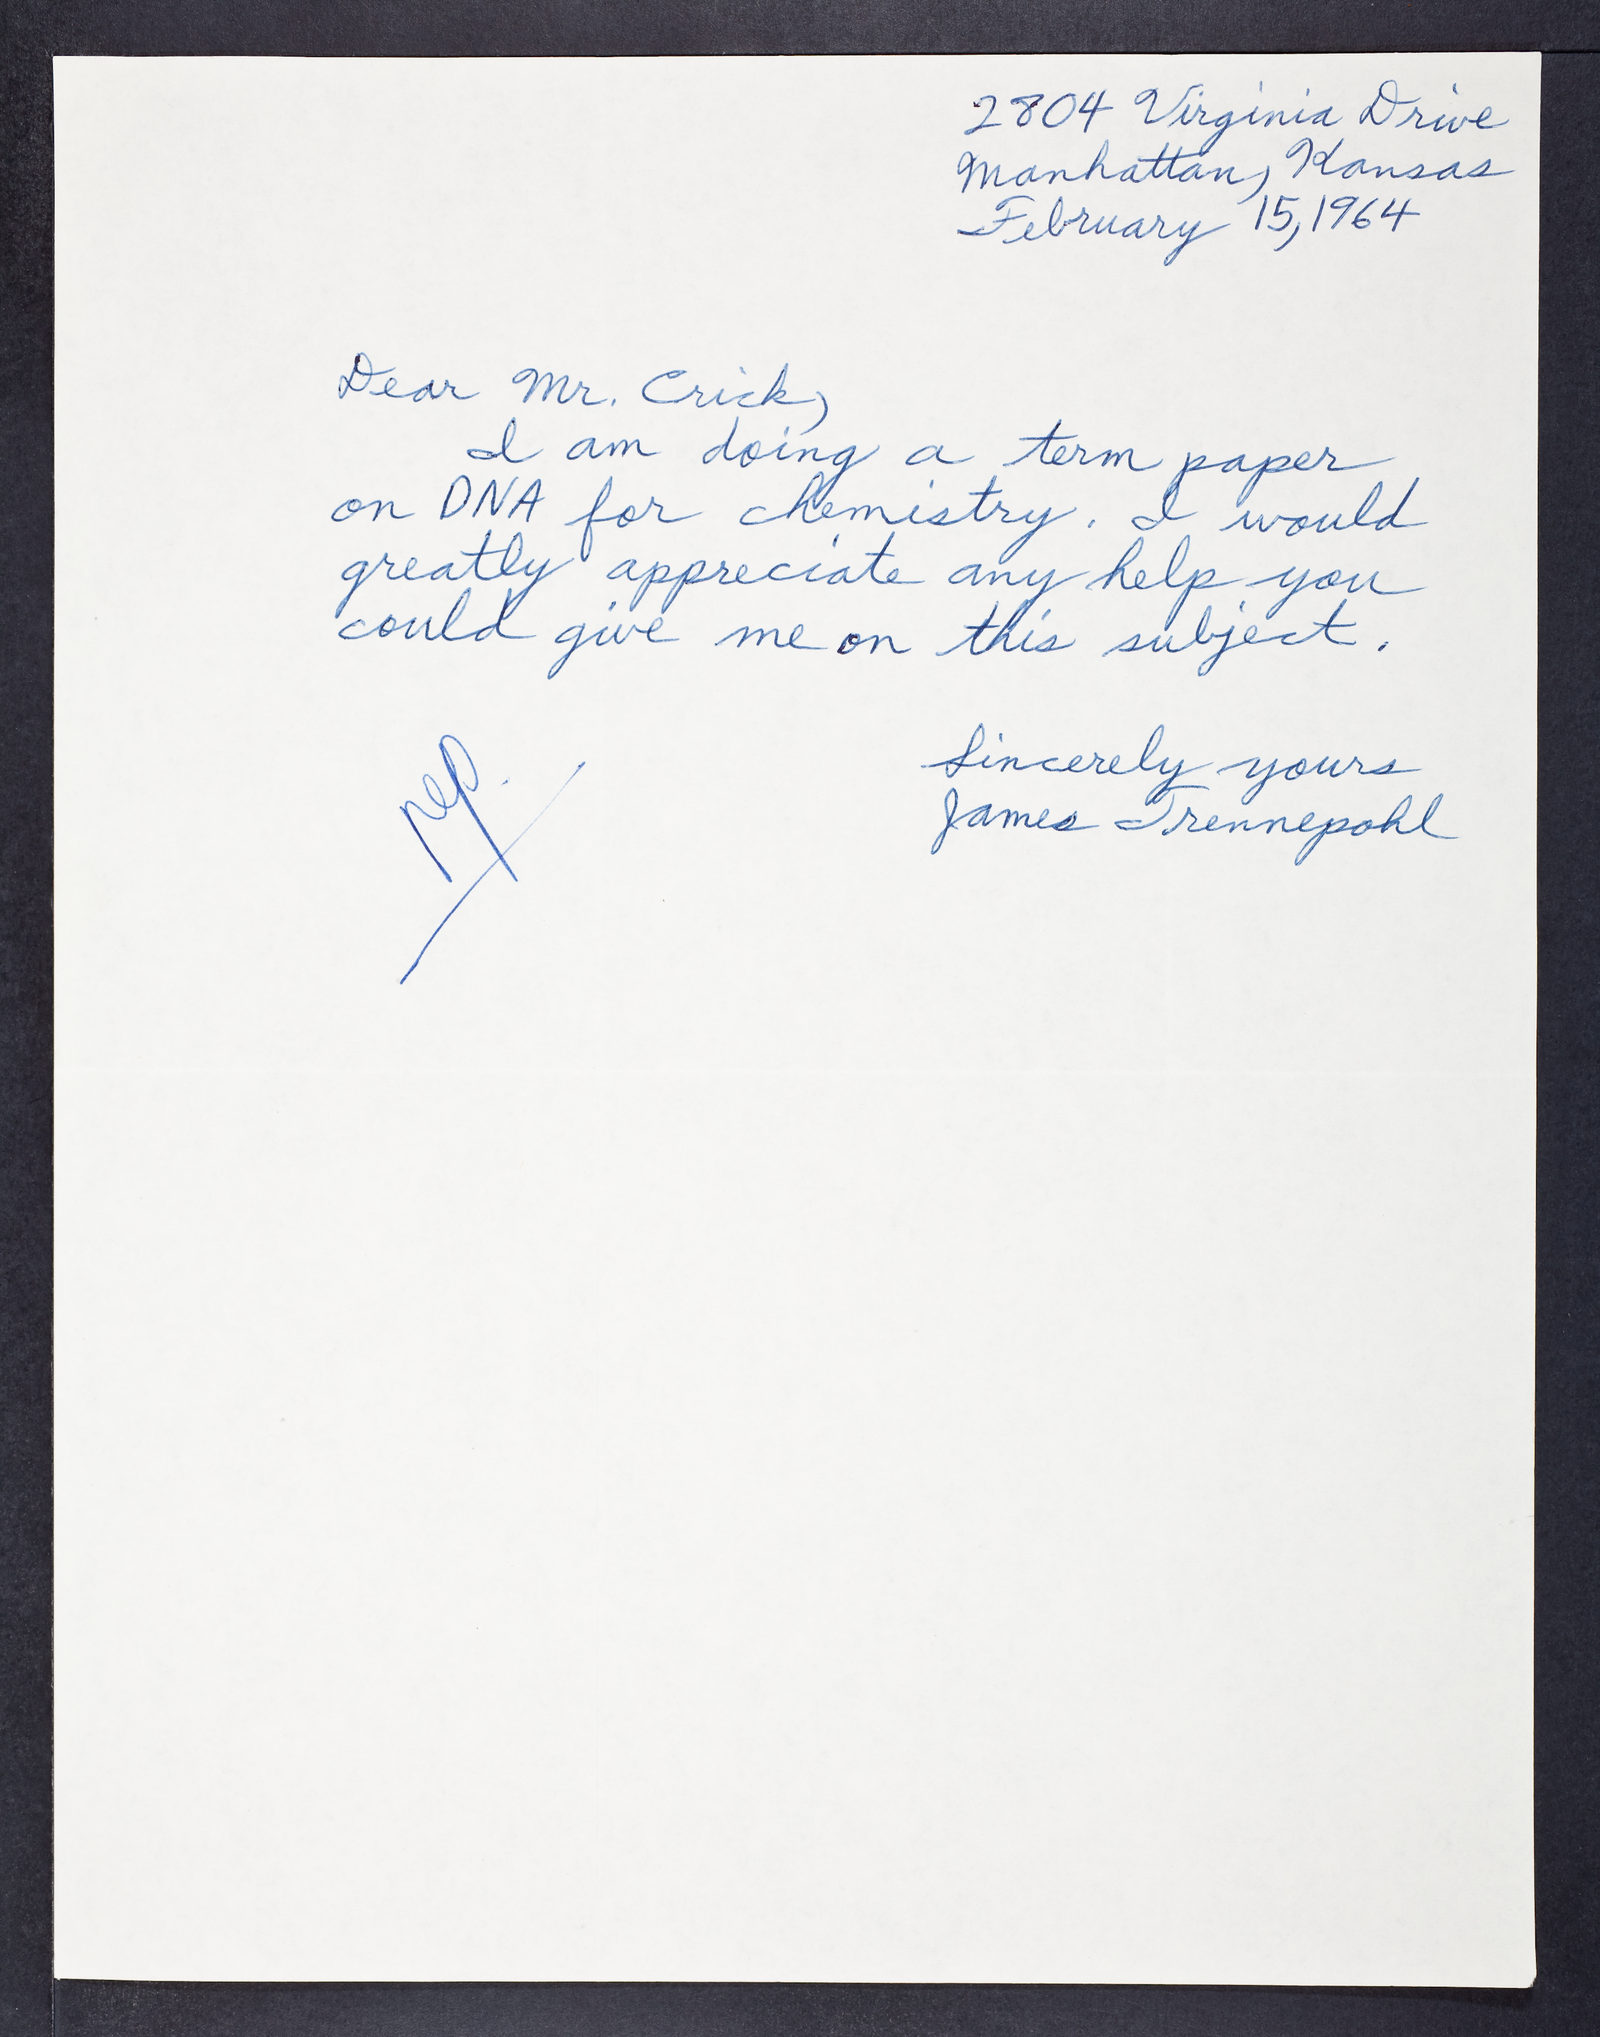 2804 Virginia Drive
Manhattan, Kansas
February 15, 1964
Dear Mr. Crick,
I am doing a term paper
on DNA for chemistry. I would
greatly appreciate any help you
could give me on this subject.
Sincerely yours
James Trennepohl